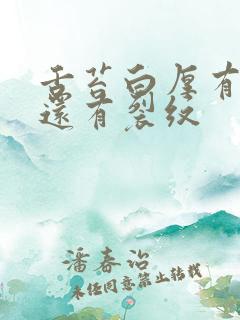 舌苔白厚有
还有裂纹
潘春治
未经同意禁止转载